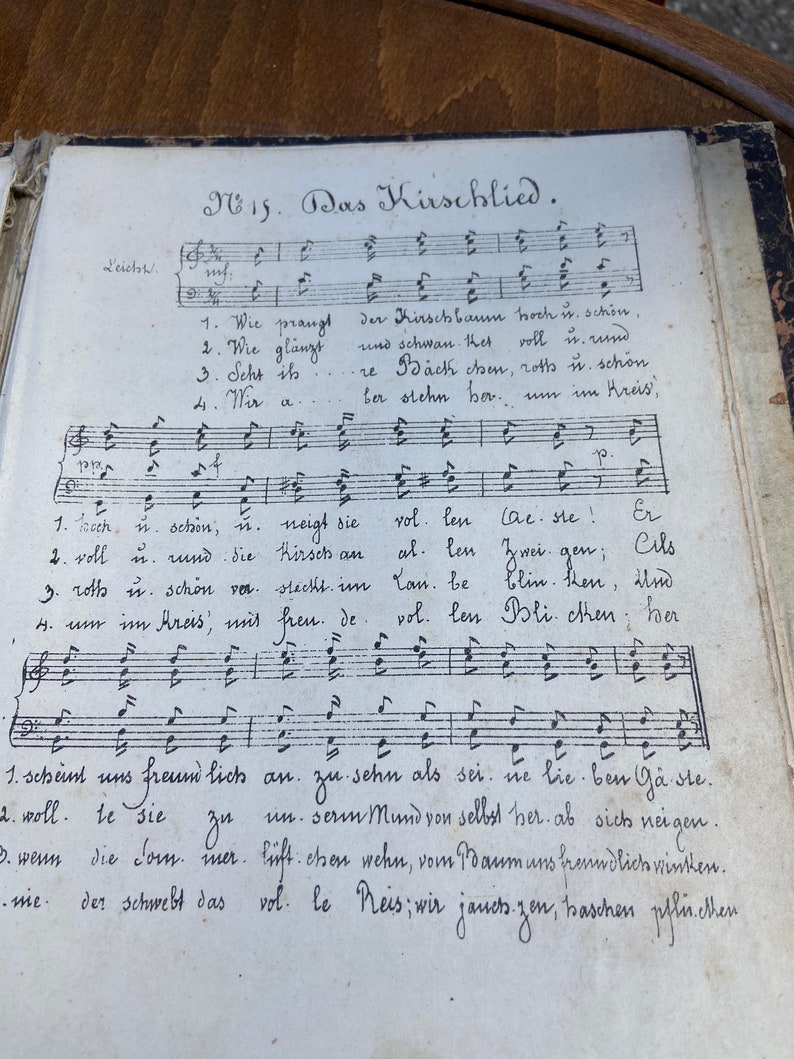 No 15. Das Kirschlied.
Leicht.
mf.
1. Wie prangt der Kirschbaum hoch ū. schön,
2. Wie glänzt und schwan. ket voll ū. rund
3. Seht ih . . . . re Bäck chen, roth ū. schön
4. Wir a . . . . . ber stehn her. um im Kreis,
pp. f p.
1. hoch ū. schön, ū. neigt sie vol. len Ae. ste! Er
2. voll ū. rund die Kirsch an al. len Zwei. gen; Als
3. roth ū. schön ver steckt. im Lau. be blin. ken, Und
4. um im Kreis, mit freu. de. vol. len Bli. cken; her
1. scheint uns freund lich an. zu. sehn als sei. ne lie. ben Gä. ste.
2. woll. te sie zu un. serm Mund von selbst her. ab sich neigen.
3. wenn die Som. mer. lüft. chen wehn, vom Baum uns freundlich winken.
. nie. der schwebt das vol. le Reis; wir jauch. zen, haschen pflü. cken